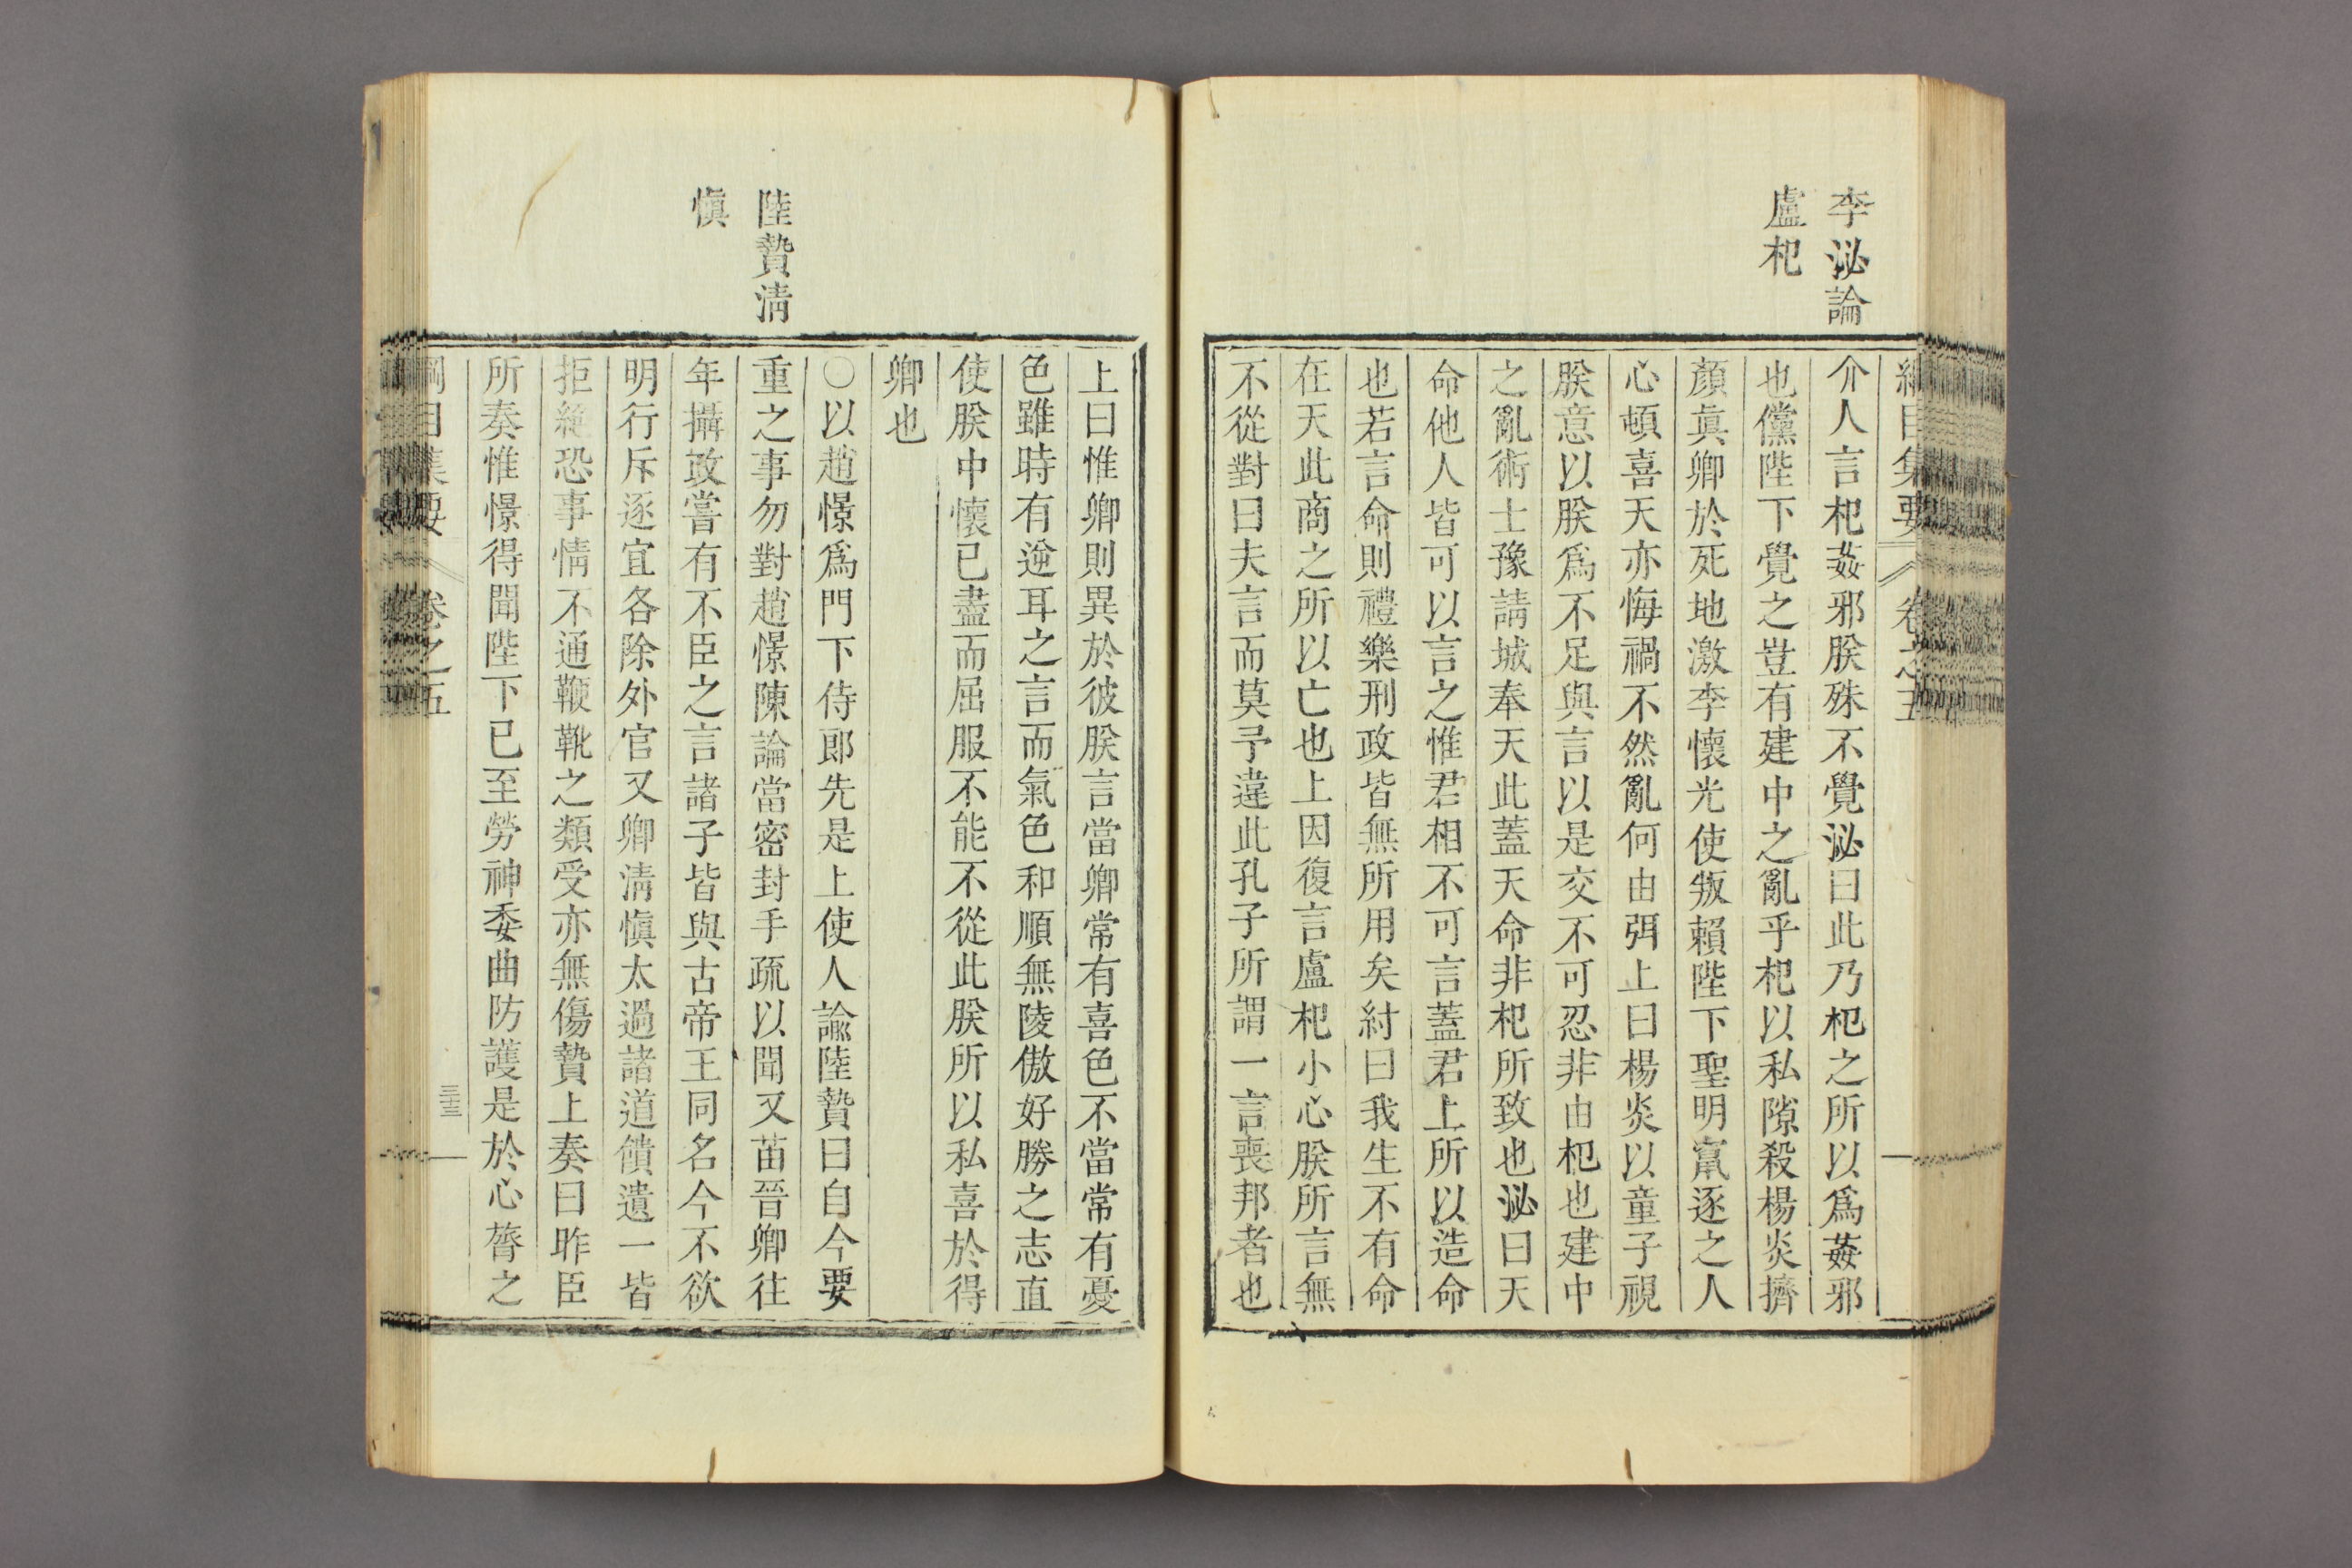 李泌論
盧杞
綱目集要 卷之五
介人言杞姦邪朕殊不覺泌曰此乃杞之所以爲姦邪
也儻陛下覺之豈有建中之亂乎杞以私隙殺楊炎擠
顏眞卿於死地激李懷光使叛賴陛下聖明竄逐之人
心頓喜天亦悔禍不然亂何由弭上曰楊炎以童子視
朕意以朕爲不足與言以是交不可忍非由杞也建中
之亂術士豫請城奉天此蓋天命非杞所致也泌曰天
命他人皆可以言之惟君相不可言蓋君上所以造命
也若言命則禮樂刑政皆無所用矣紂曰我生不有命
在天此商之所以亡也上因復言盧杞小心朕所言無
不從對曰夫言而莫予違此孔子所謂一言喪邦者也
上曰惟卿則異於彼朕言當卿常有喜色不當常有憂
色雖時有逆耳之言而氣色和順無陵傲好勝之志直
使朕中懷已盡而屈服不能不從此朕所以私喜於得
卿也
陸贄淸
愼
〇以趙憬爲門下侍郎先是上使人諭陸贄曰自今要
重之事勿對趙憬陳論當密封手疏以聞又苗晉卿往
年攝政嘗有不臣之言諸子皆與古帝王同名今不欲
明行斥逐宜各除外官又卿淸愼太過諸道饋遺一皆
拒絕恐事情不通鞭靴之類受亦無傷贄上奏曰昨臣
所奏惟憬得聞陛下已至勞神委曲防護是於心膂之
綱目集要 卷之五 三十三